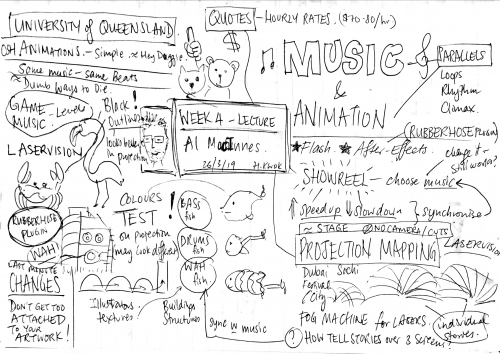 UNIVERSITY of QUEENSLAND
QUOTES - HOURLY RATES. ($70-80/hr)
$
ANIMATIONS. - Simple
Hey Duggie.
Same music - same beats
Dumb Ways to Die.
GAME - Levels
MUSIC
Black
Outlines
looks better
in projection
LASERVISION
WEEK 4 - LECTURE
Al MacInnes.
26/3/19
MUSIC
&
ANIMATION
PARALLELS
Loops
Rhythm
Climax.
(RUBBERHOSE PLUGIN)
Flash. After-Effects.
SHOWREEL - choose music
change it -
still works?
speed up slowdown synchronise
~ STAGE NO CAMERA/CUTS
PROJECTION MAPPING
LASERVISION
Dubai
Festival
City
Sochi
FOG MACHINE for LASERS.
individual
stories.
? HOW TELL STORIES over 3 Screens?
RUBBERHOSE
PLUGIN
WAH!
LAST MINUTE
CHANGES
DON'T GET TOO
ATTACHED
TO YOUR
ARTWORK!
COLOURS
TEST!
on projection
may look different
BASS
fish
DRUMS
fish
WAH
fish
Illustrations
textures
Buildings
Structures
sync w music